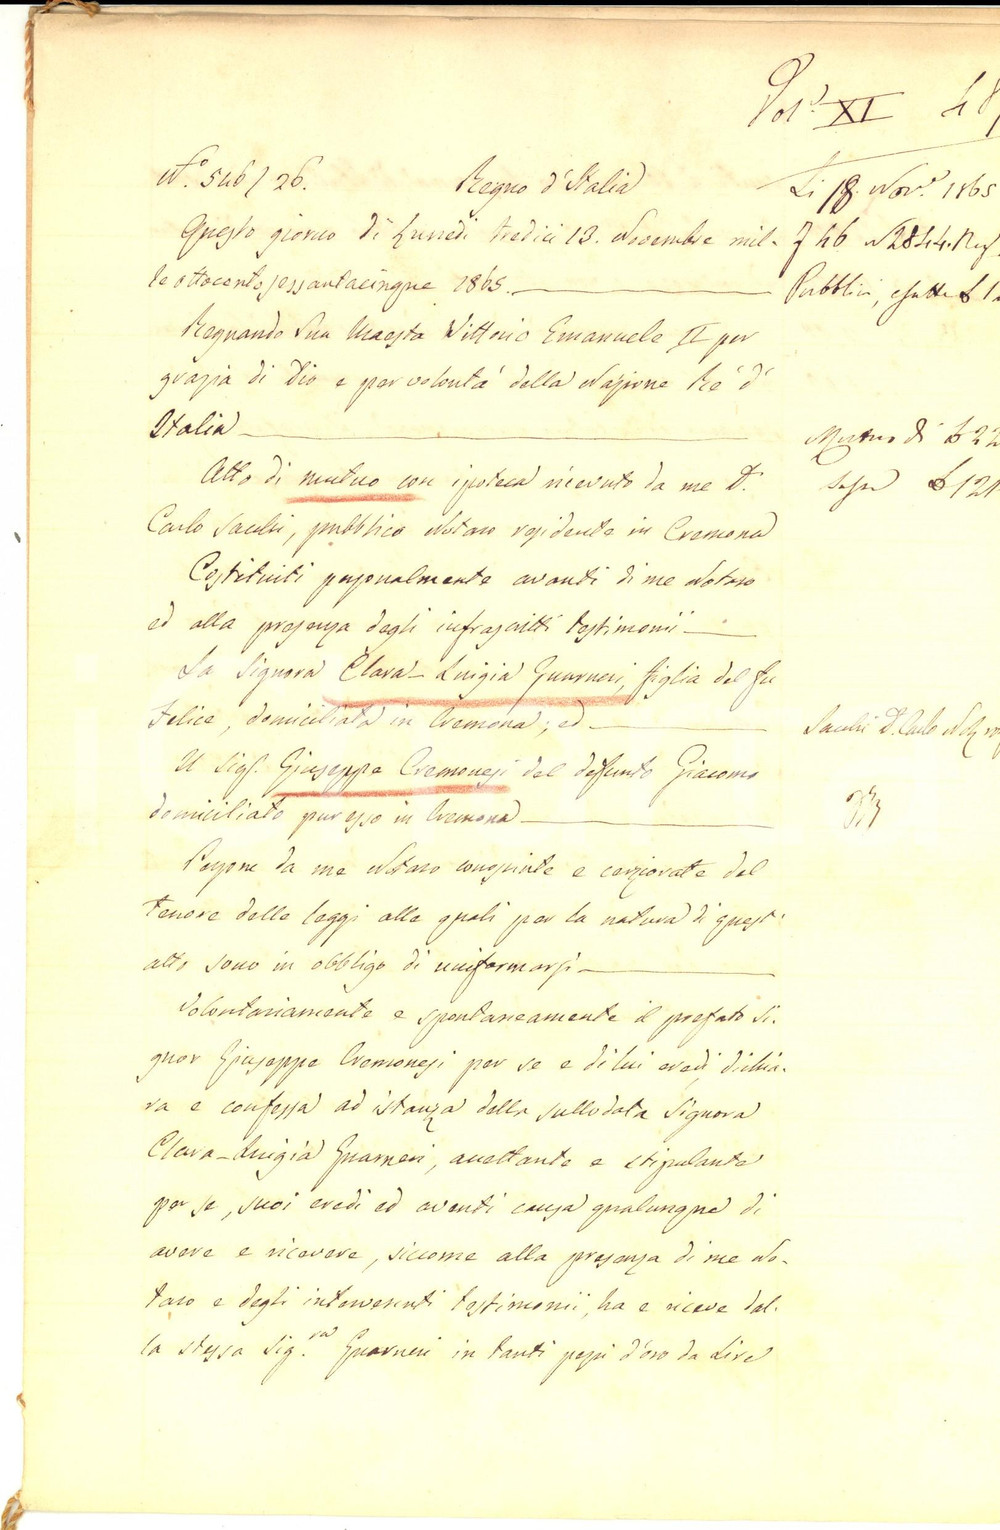 Vol.e XI
N.° 546/26. Regno d'Italia
Li 18 Nov.e 1865
Questo giorno di Lunedi tredici 13. Novembre mil-
le ottocentosessantacinque 1865.
Pubblici, esatte £
Regnando Sua Maestà Vittorio Emanuele II per
grazia di Dio e per volontà della Nazione Re d'
Italia
Mutuo di £ 22
Atto di mutuo con ipoteca ricevuto da me D.r
£ 121
Carlo Sacchi, pubblico Notaro residente in Cremona
Costituiti personalmente avanti di me Notaro
ed alla presenza degli infrascritti testimonii
La Signora Clara-Luigia Guarneri, figlia del fu
Felice, domiciliata in Cremona; ed
Sacchi D.r Carlo Not.
Il Sig.r Giuseppe Cremonesi del defunto Giacomo
domiciliato pur esso in Cremona
Persone da me Notaro conosciute e cerziorate del
tenore delle leggi alle quali per la natura di quest'
atto sono in obbligo di uniformarsi
Volontariamente e spontaneamente il prefato Si-
gnor Giuseppe Cremonesi per se e di lui eredi, dichia-
ra e confessa ad istanza della sullodata Signora
Clara-Luigia Guarneri, accettante e stipulante
per se, suoi eredi ed aventi causa qualunque di
avere e ricevere, siccome alla presenza di me No-
taro e degli intervenuti testimonii, ha e riceve dal-
la stessa Sig.ra Guarneri in tanti pezzi d'oro da Lire